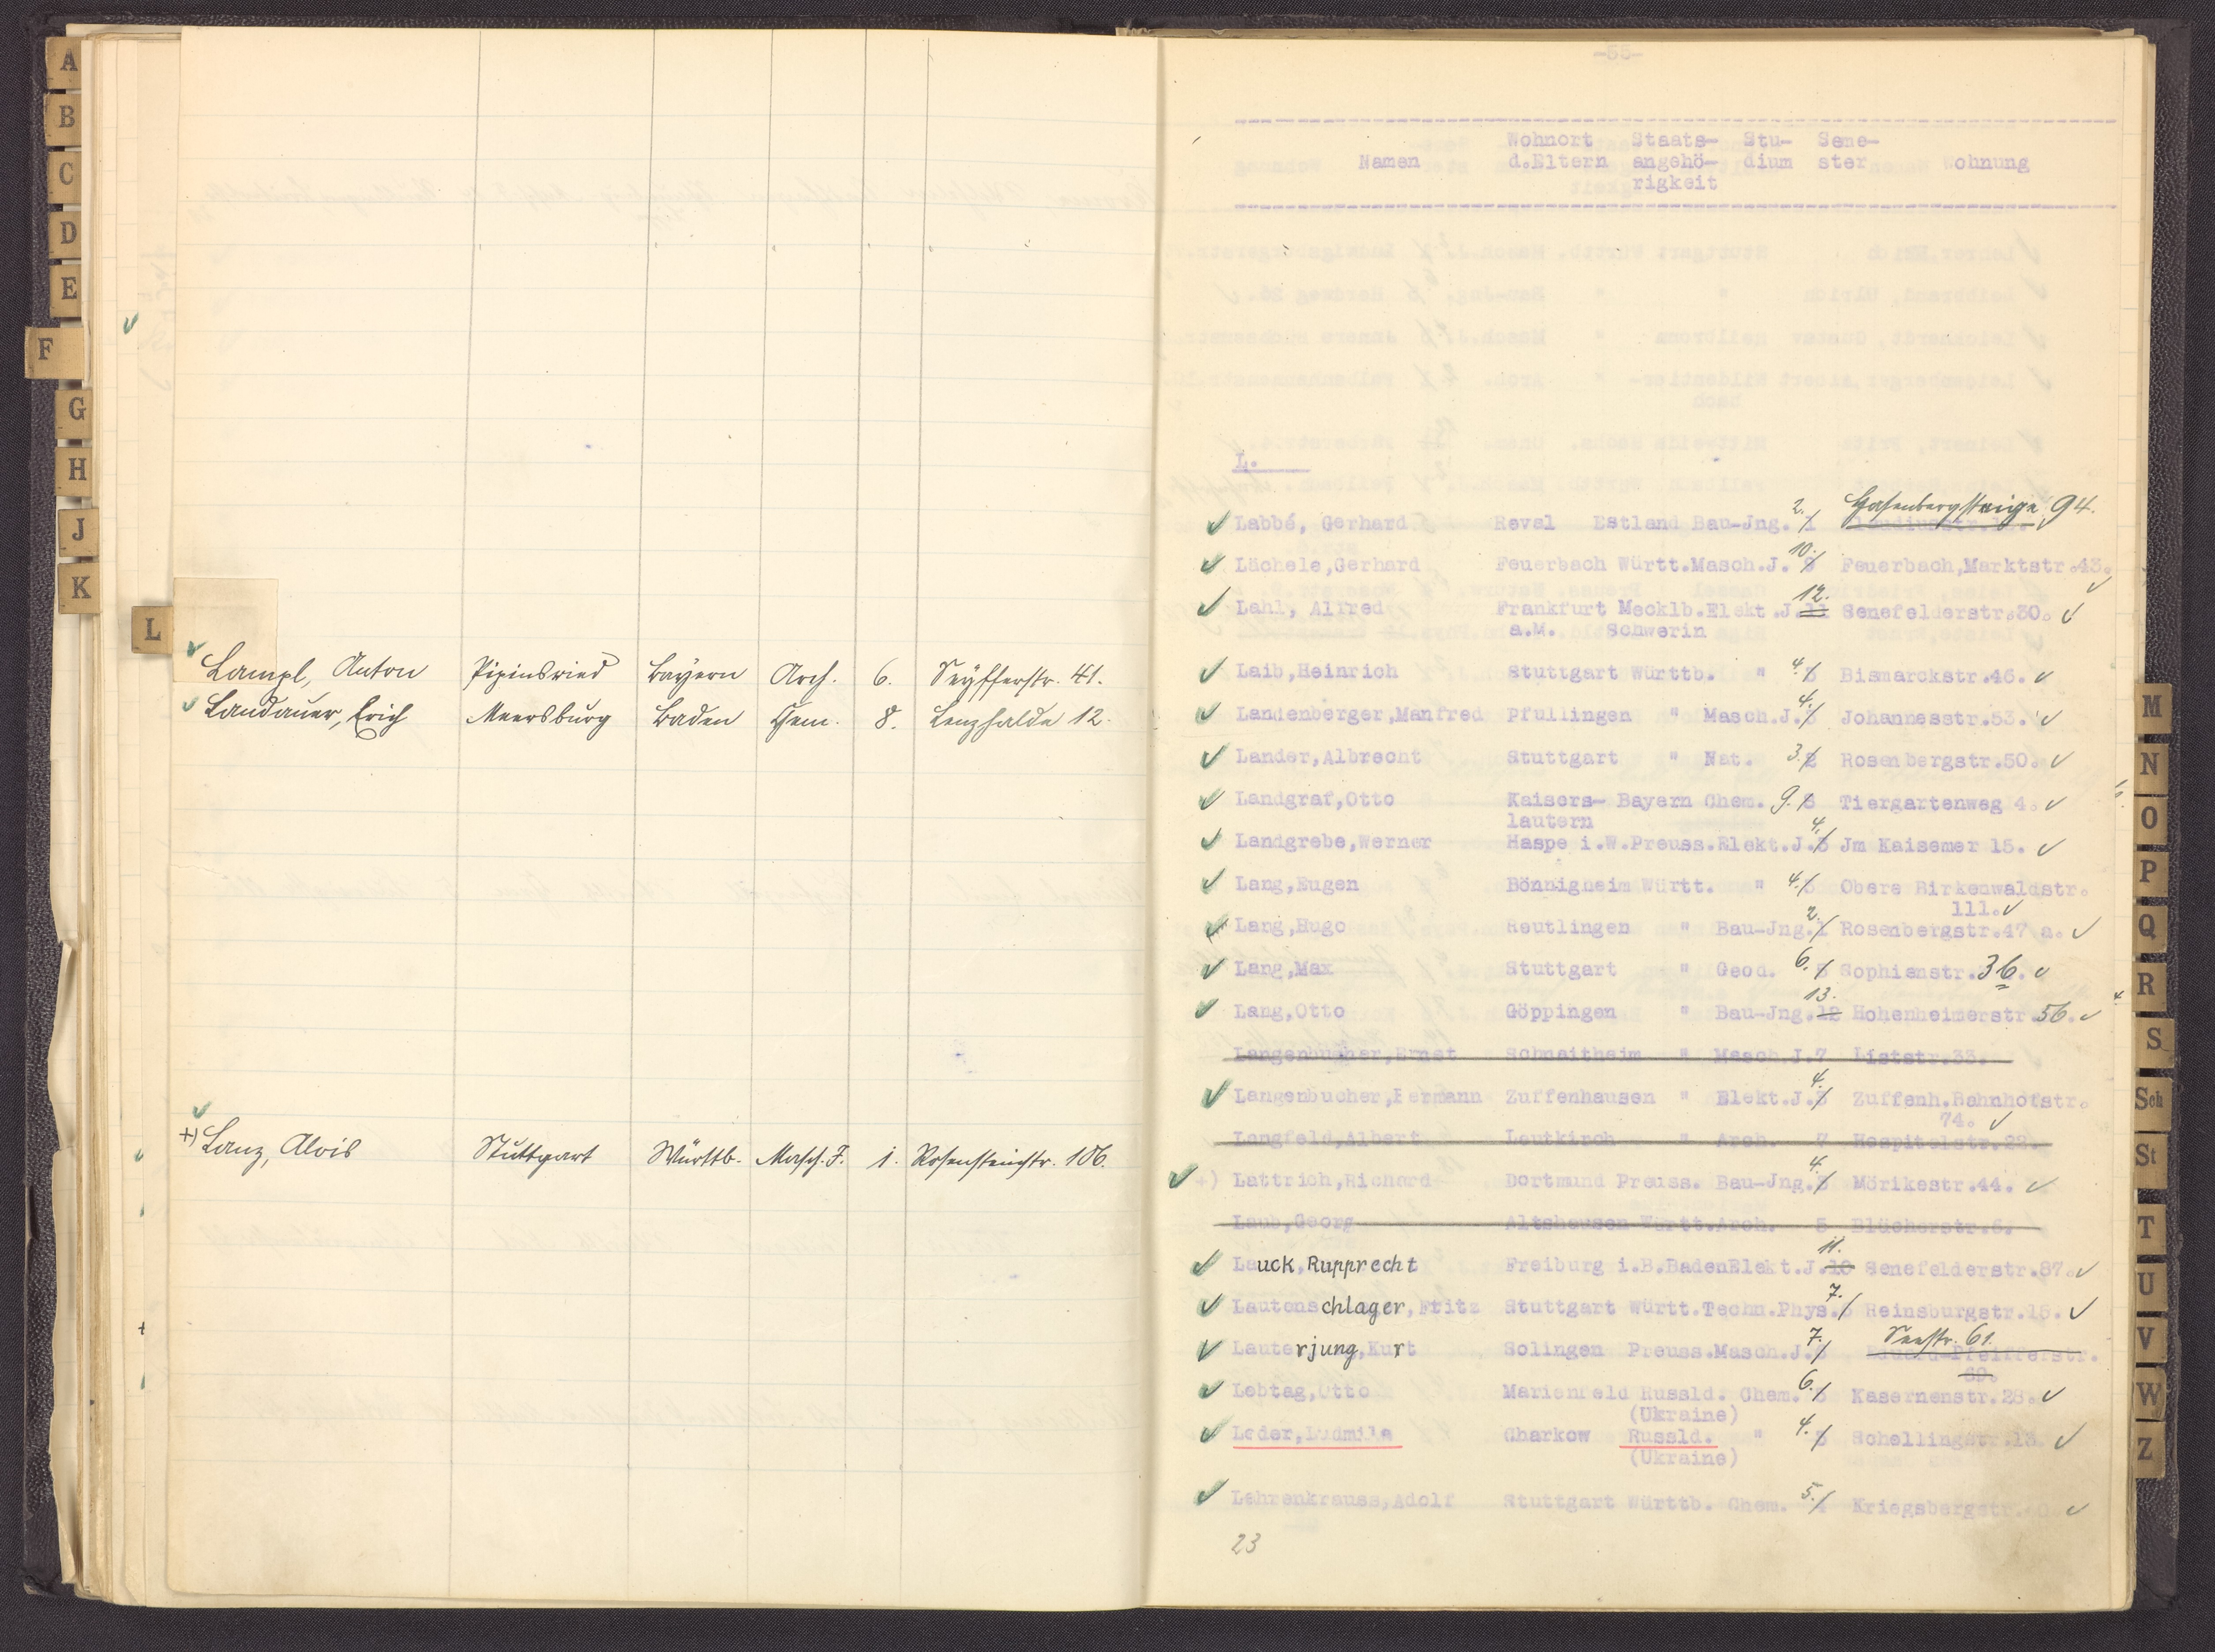 A
B
C
D
E
F
G
H
J
K
L
Lampl, Anton Pipinsried Bayern Arch. 6. Seyfferstr. 41.
Landauer, Erich Meersburg Baden Chem. 8. Lenzhalde 12.
+) Lanz, Alois Stuttgart Württb. Masch.I. 1. Rosensteinstr. 106.
-55-
Wohnort Staats- Stu- Seme-
Namen d.Eltern angehö- dium ster Wohnung
rigkeit
L.
2. Hasenbergsteige 94.
Labbé, Gerhard Reval Estland Bau-Jng. 1
10.
Lächele,Gerhard Feuerbach Württ.Masch.J. 9 Feuerbach,Marktstr.43.
12.
Lahl, Alfred Frankfurt Mecklb.Elekt.J.11 Senefelderstr.30.
a.M. Schwerin
Laib,Heinrich Stuttgart Württb. " 4. 3 Bismarckstr.46.
4.
Landenberger,Manfred Pfullingen " Masch.J.3 Johannesstr.53.
Lander,Albrecht Stuttgart " Nat. 3. 2 Rosenbergstr.50.
Landgraf,Otto Kaisers- Bayern Chem. 9. 8 Tiergartenweg 4.
lautern
4.
Landgrebe,Werner Haspe i.W.Preuss.Elekt.J.3 Jm Kaisemer 15.
Lang,Eugen Bönnigheim Württ. " 4. 3 Obere Birkenwaldstr.
111.
2.
Lang,Hugo Reutlingen " Bau-Jng.1 Rosenbergstr.47 a.
Lang,Max Stuttgart " Geod. 6. 5 Sophienstr.36.
13.
Lang,Otto Göppingen " Bau-Jng.12 Hohenheimerstr 56.
Langenbucher,Ernst Schnaitheim " Masch.J.7 Liststr.33.
4.
Langenbucher,Hermann Zuffenhausen " Elekt.J.3 Zuffenh.Bahnhofstr.
74.
Langfeld,Albert Leutkirch " Arch. 7 Hospitalstr.22.
4.
+) Lattrich,Richard Dortmund Preuss. Bau-Jng.3 Mörikestr.44.
Laub,Georg Altshausen Württ.Arch. 5 Blücherstr.6.
11.
Lauck, Rupprecht Freiburg i.B.BadenElekt.J.10 Senefelderstr.87.
7.
Lautenschlager,Fritz Stuttgart Württ.Techn.Phys.6 Reinsburgstr.15.
7. Seestr. 61.
Lauterjung,Kurt Solingen Preuss.Masch.J.6 Eduard-Pfeifferstr.
69.
Lebtag,Otto Marienfeld Russld. Chem. 6. 5 Kasernenstr.28.
(Ukraine)
Leder,Ludmila Charkow Russld. " 4. 3 Schellingstr.13
(Ukraine)
Lehrenkrauss,Adolf Stuttgart Württb. Chem. 5. 4 Kriegsbergstr.
23
M
N
O
P
Q
R
S
Sch
St
T
U
V
W
Z